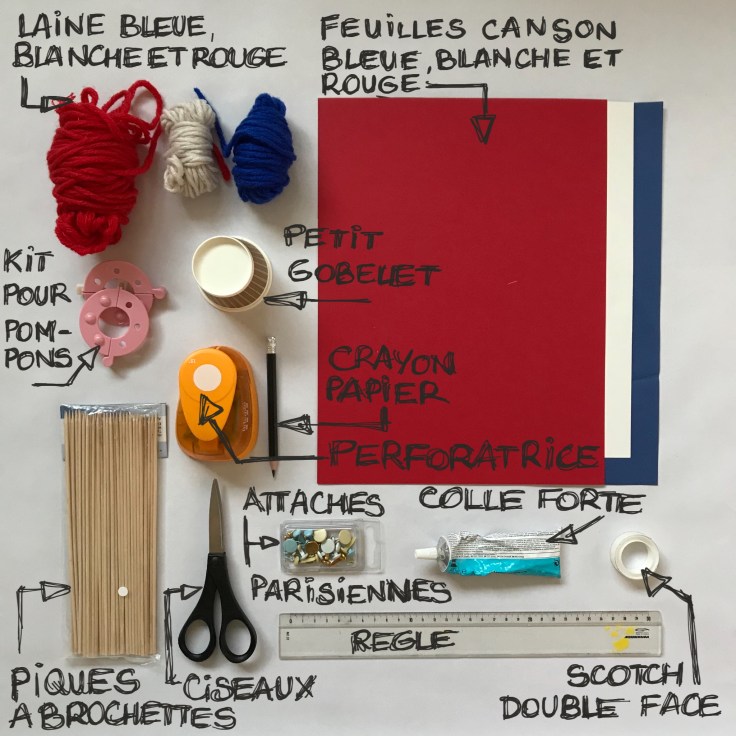 LAINE BLEUE,
BLANCHE ET ROUGE
FEUILLES CANSON
BLEUE, BLANCHE ET
ROUGE
KIT
POUR
POM-
PONS
PETIT
GOBELET
CRAYON
PAPIER
PERFORATRICE
ATTACHES
PARISIENNES
COLLE FORTE
REGLE
PIQUES
A BROCHETTES
CISEAUX
SCOTCH
DOUBLE FACE